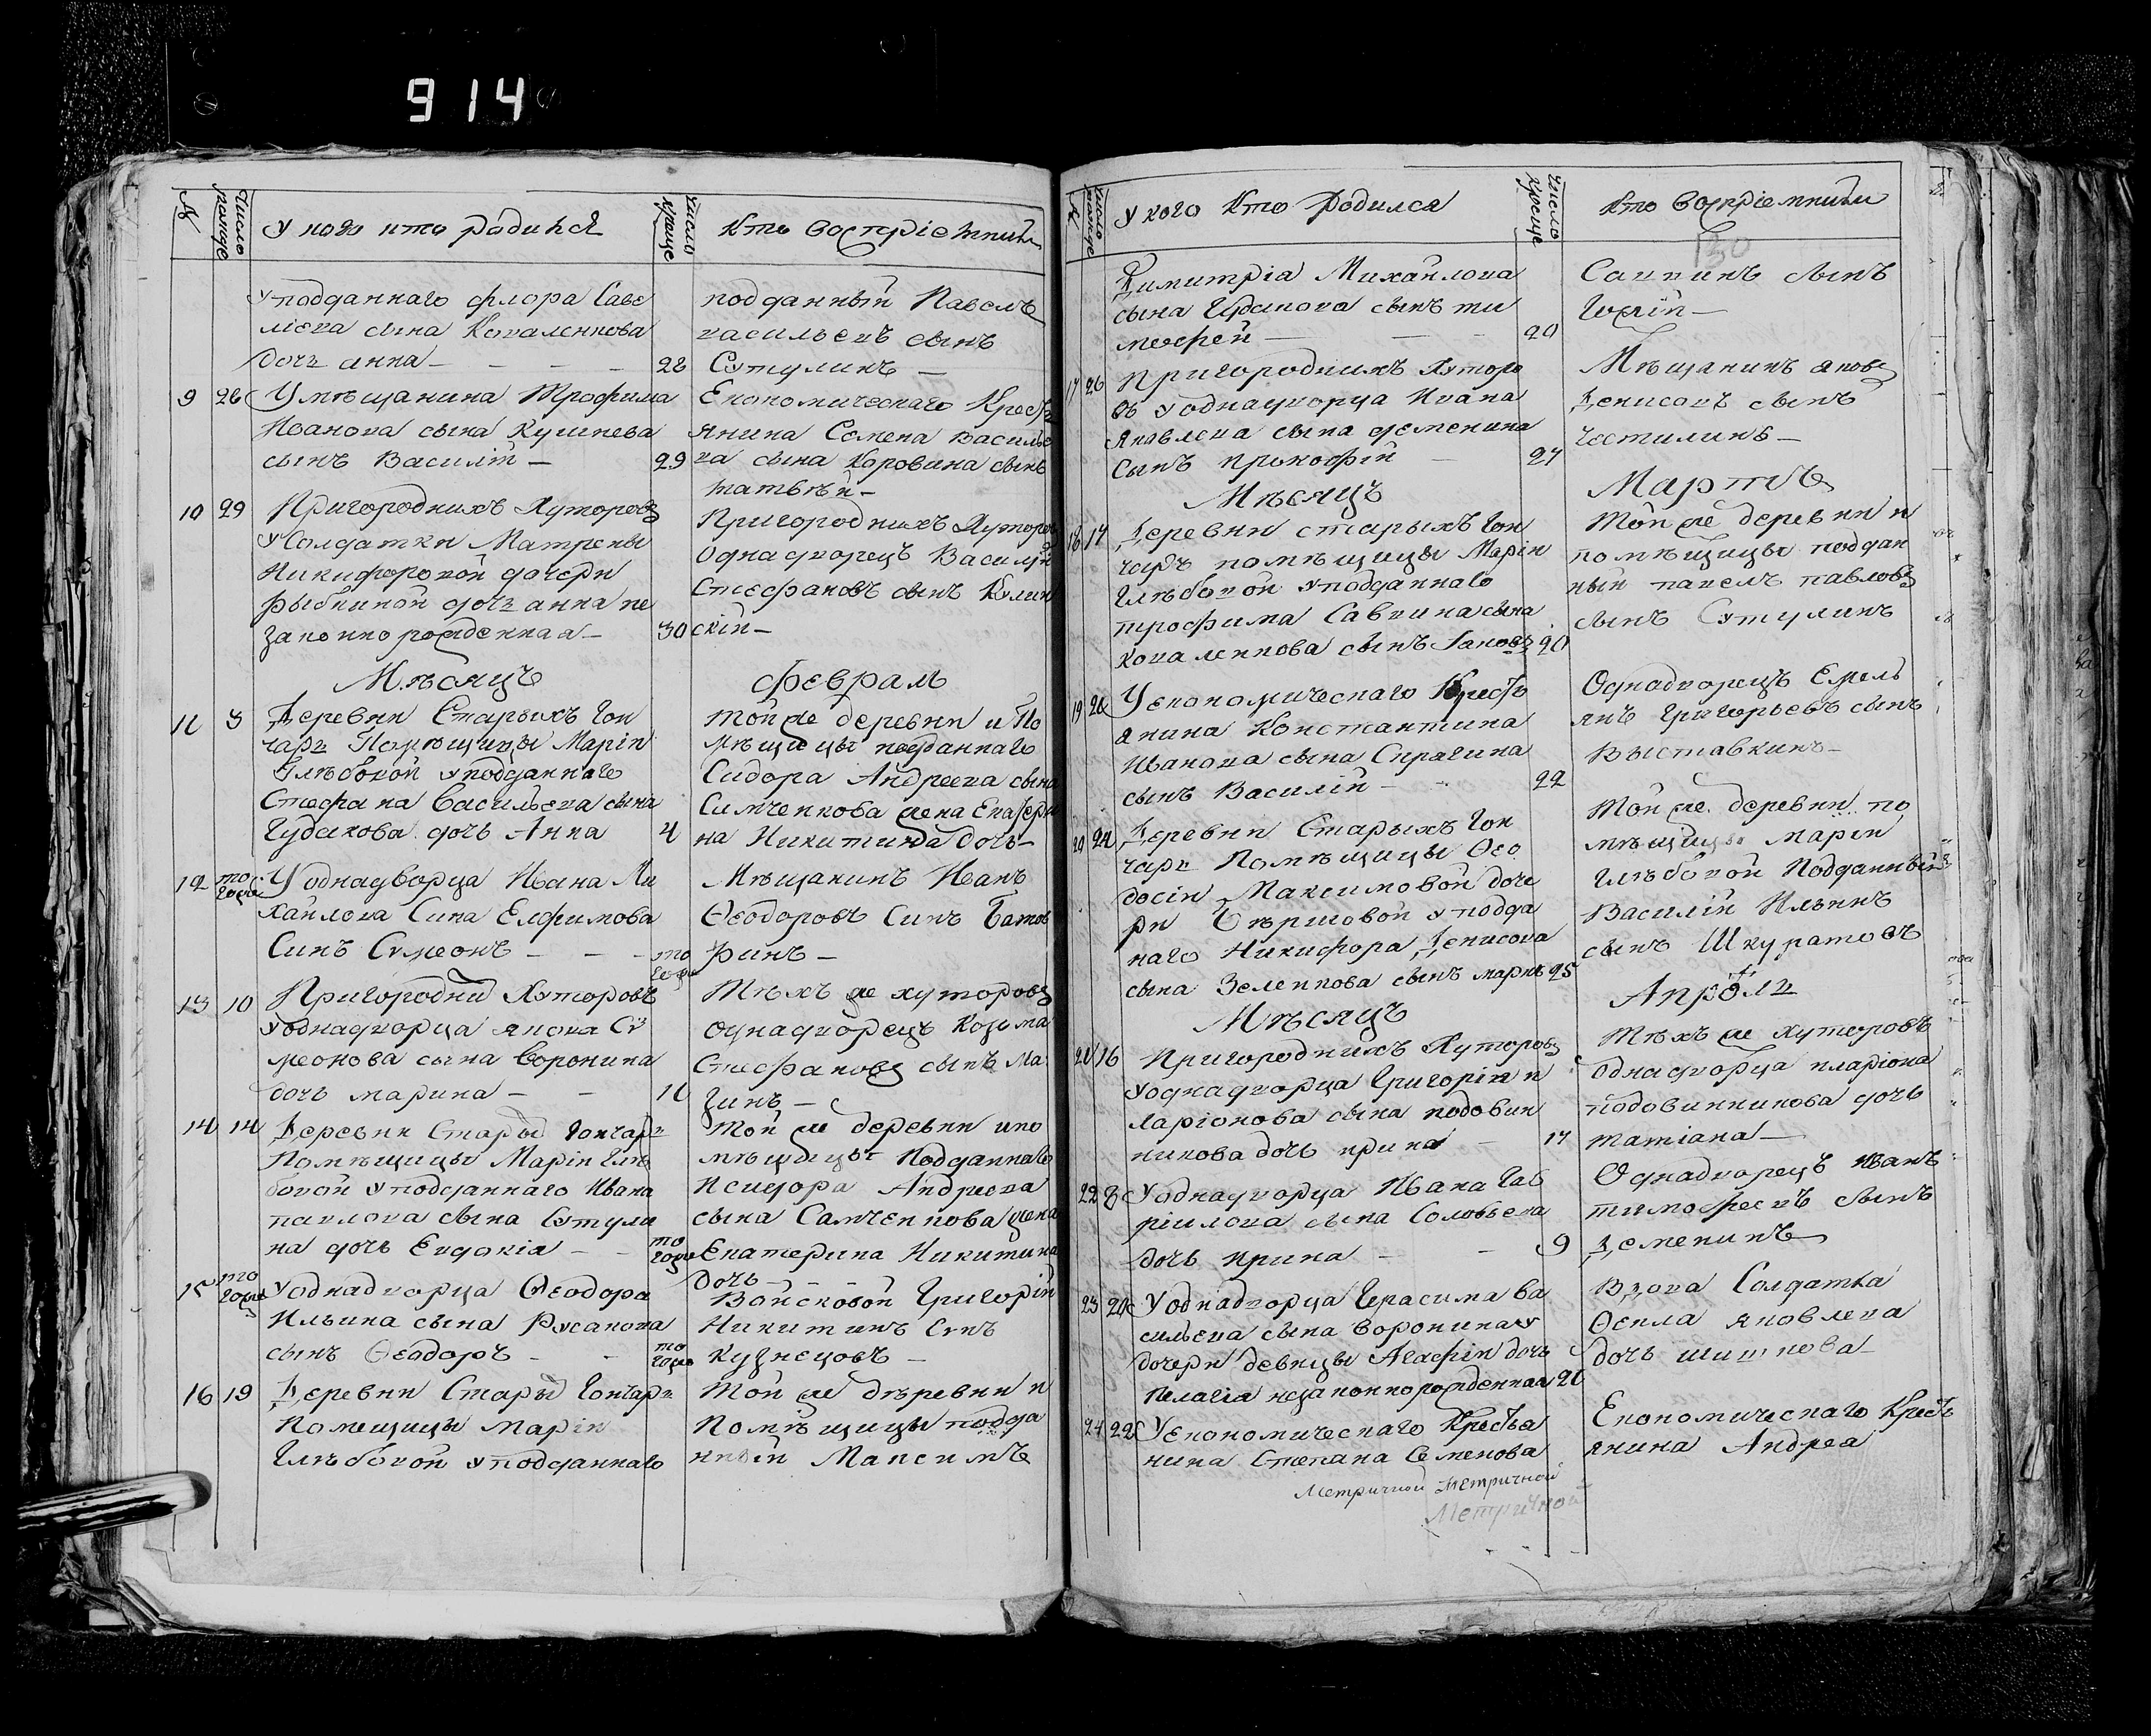 914
№
Число рожде
У кого кто радился
Число креще
Кто воспріемники
уподданнаго флора Саве
лієва сына Коваленкова
дочь анна
28
подданный Павелъ
васильевъ сынъ
Сутулинъ
9 26
Умѣщанина Трофима
Иванова сына Кушнева
сынъ Василій
29
Економическаго Кресть
янина Семена Василье
ва сына Коровина сынъ
матвѣй
10 29
Пригороднихъ Хуторовъ
у Солдатки Матрены
Никифоровой дочери
рыбкиной дочь анна не
законно рожденная
30
Пригороднихъ Хуторовъ
Однадворецъ Василій
Стефановъ сынъ Кулин
скій
Мѣсяцъ
февраль
11 3
Деревни Старыхъ Гон
чаръ Помѣщицы Маріи
Глѣбовой уподданнаго
Стефана Васильева сына
Гудакова дочь Анна
4
той же деревни и По
мѣщицы подданнаго
Сидора Андреева сына
Самченкова жена Екатери
на Никитина дочь
12 тогоже
Уоднадворца Ивана Ми
хайлова Сина Елфимова
Синъ Сумеонъ
тогоже
Мѣщанинъ Иванъ
Ѳеодоровъ Синъ Батов
ринъ
13 10
Пригородни Хуторовъ
уоднадворца якова Су
меонова сына Воронина
дочь марина
11
Тѣхъ же хуторовъ
однадворецъ Козьма
Стефановъ сынъ Ма
зинъ
14 14
Деревни Стары Гончаръ
Помѣщицы Маріи Глѣ
бовой уподданнаго Ивана
павлова сына Сутули
на дочь Евдокія
тогоже
Той же деревни ипо
мѣщицы Подданнаго
Исидора Андреева
сына Самченкова жена
Екатерина Никитина
дочь
15 тогоже
уоднадворца Ѳеодора
Ильина сына Русакова
сынъ Ѳеодоръ
тогоже
Войсковой Григорій
Никитинъ Сунъ
кузнецовъ
16 19
Деревни Стары Гончаръ
Помещицы Маріи
Глѣбовой уподданнаго
Той же дѣревни и
Помѣщицы подда
нный Максимъ
№
Число рожде
У кого Кто Родился
Число Креще
Кто Воспріемники
130
Димитріа Михайлова
сына Гудакова сынъ ти
мофей
20
Саввинъ сынъ
17 26
Пригороднихъ Хуторо
въ уоднадворца Ивана
Яковлева сына деменина
сынъ прокофій
27
Мѣщанинъ яковъ
Денисовъ сынъ
Честилинъ
Мѣсяцъ
Мартъ
18 17
Деревни старыхъ Гон
чаръ помѣщицы Маріи
Глѣбовой уподданнаго
трофима Саввина сына
коваленкова сынъ Іаковъ
20
Той же деревни и
помѣщицы поддан
ный павелъ павловъ
сынъ Сутулинъ
19 20
Уекономическаго Кресть
янина Константина
Иванова сына Сирагина
сынъ Василій
22
Однадворецъ Емель
янъ Григорьевъ сынъ
Выставкинъ
20 24
Деревни Старыхъ Гон
чаръ Помѣщицы Ѳео
досіи Максимовой доче
ри уподда
наго Никифора Денисова
сына Зеленкова сынъ маркъ
25
Той же деревни по
мѣщицы Маріи
Глѣбовой Подданный
Василій Ильинъ
сынъ Шкуратовъ
Мѣсяцъ
Апрѣль
21 16
Пригороднихъ Хуторовъ
уоднадворца Григорія и
ларіонова сына подовин
никова дочь ирина
17
Тѣхъ же хуторовъ
однадворца иларіона
подовинникова дочь
татіана
22 8
Уоднадворца Ивана Гав
ріилова сына Соловьева
дочь ирина
9
Однадворецъ иванъ
тимофеевъ сынъ
Деменинъ
23 20
Уоднадворца Герасима Ва
сильева сына Воронина у
дочери девицы Агафіи дочь
Пелагіа незаконнорожденная
21
Вдова Солдатка
Ѳекла яковлева
дочь шишкова
24 22
Уекономическаго Крестья
нина Степана Семенова
Економическаго Кресть
янина Андреа
Метричной Метричной
Метричной